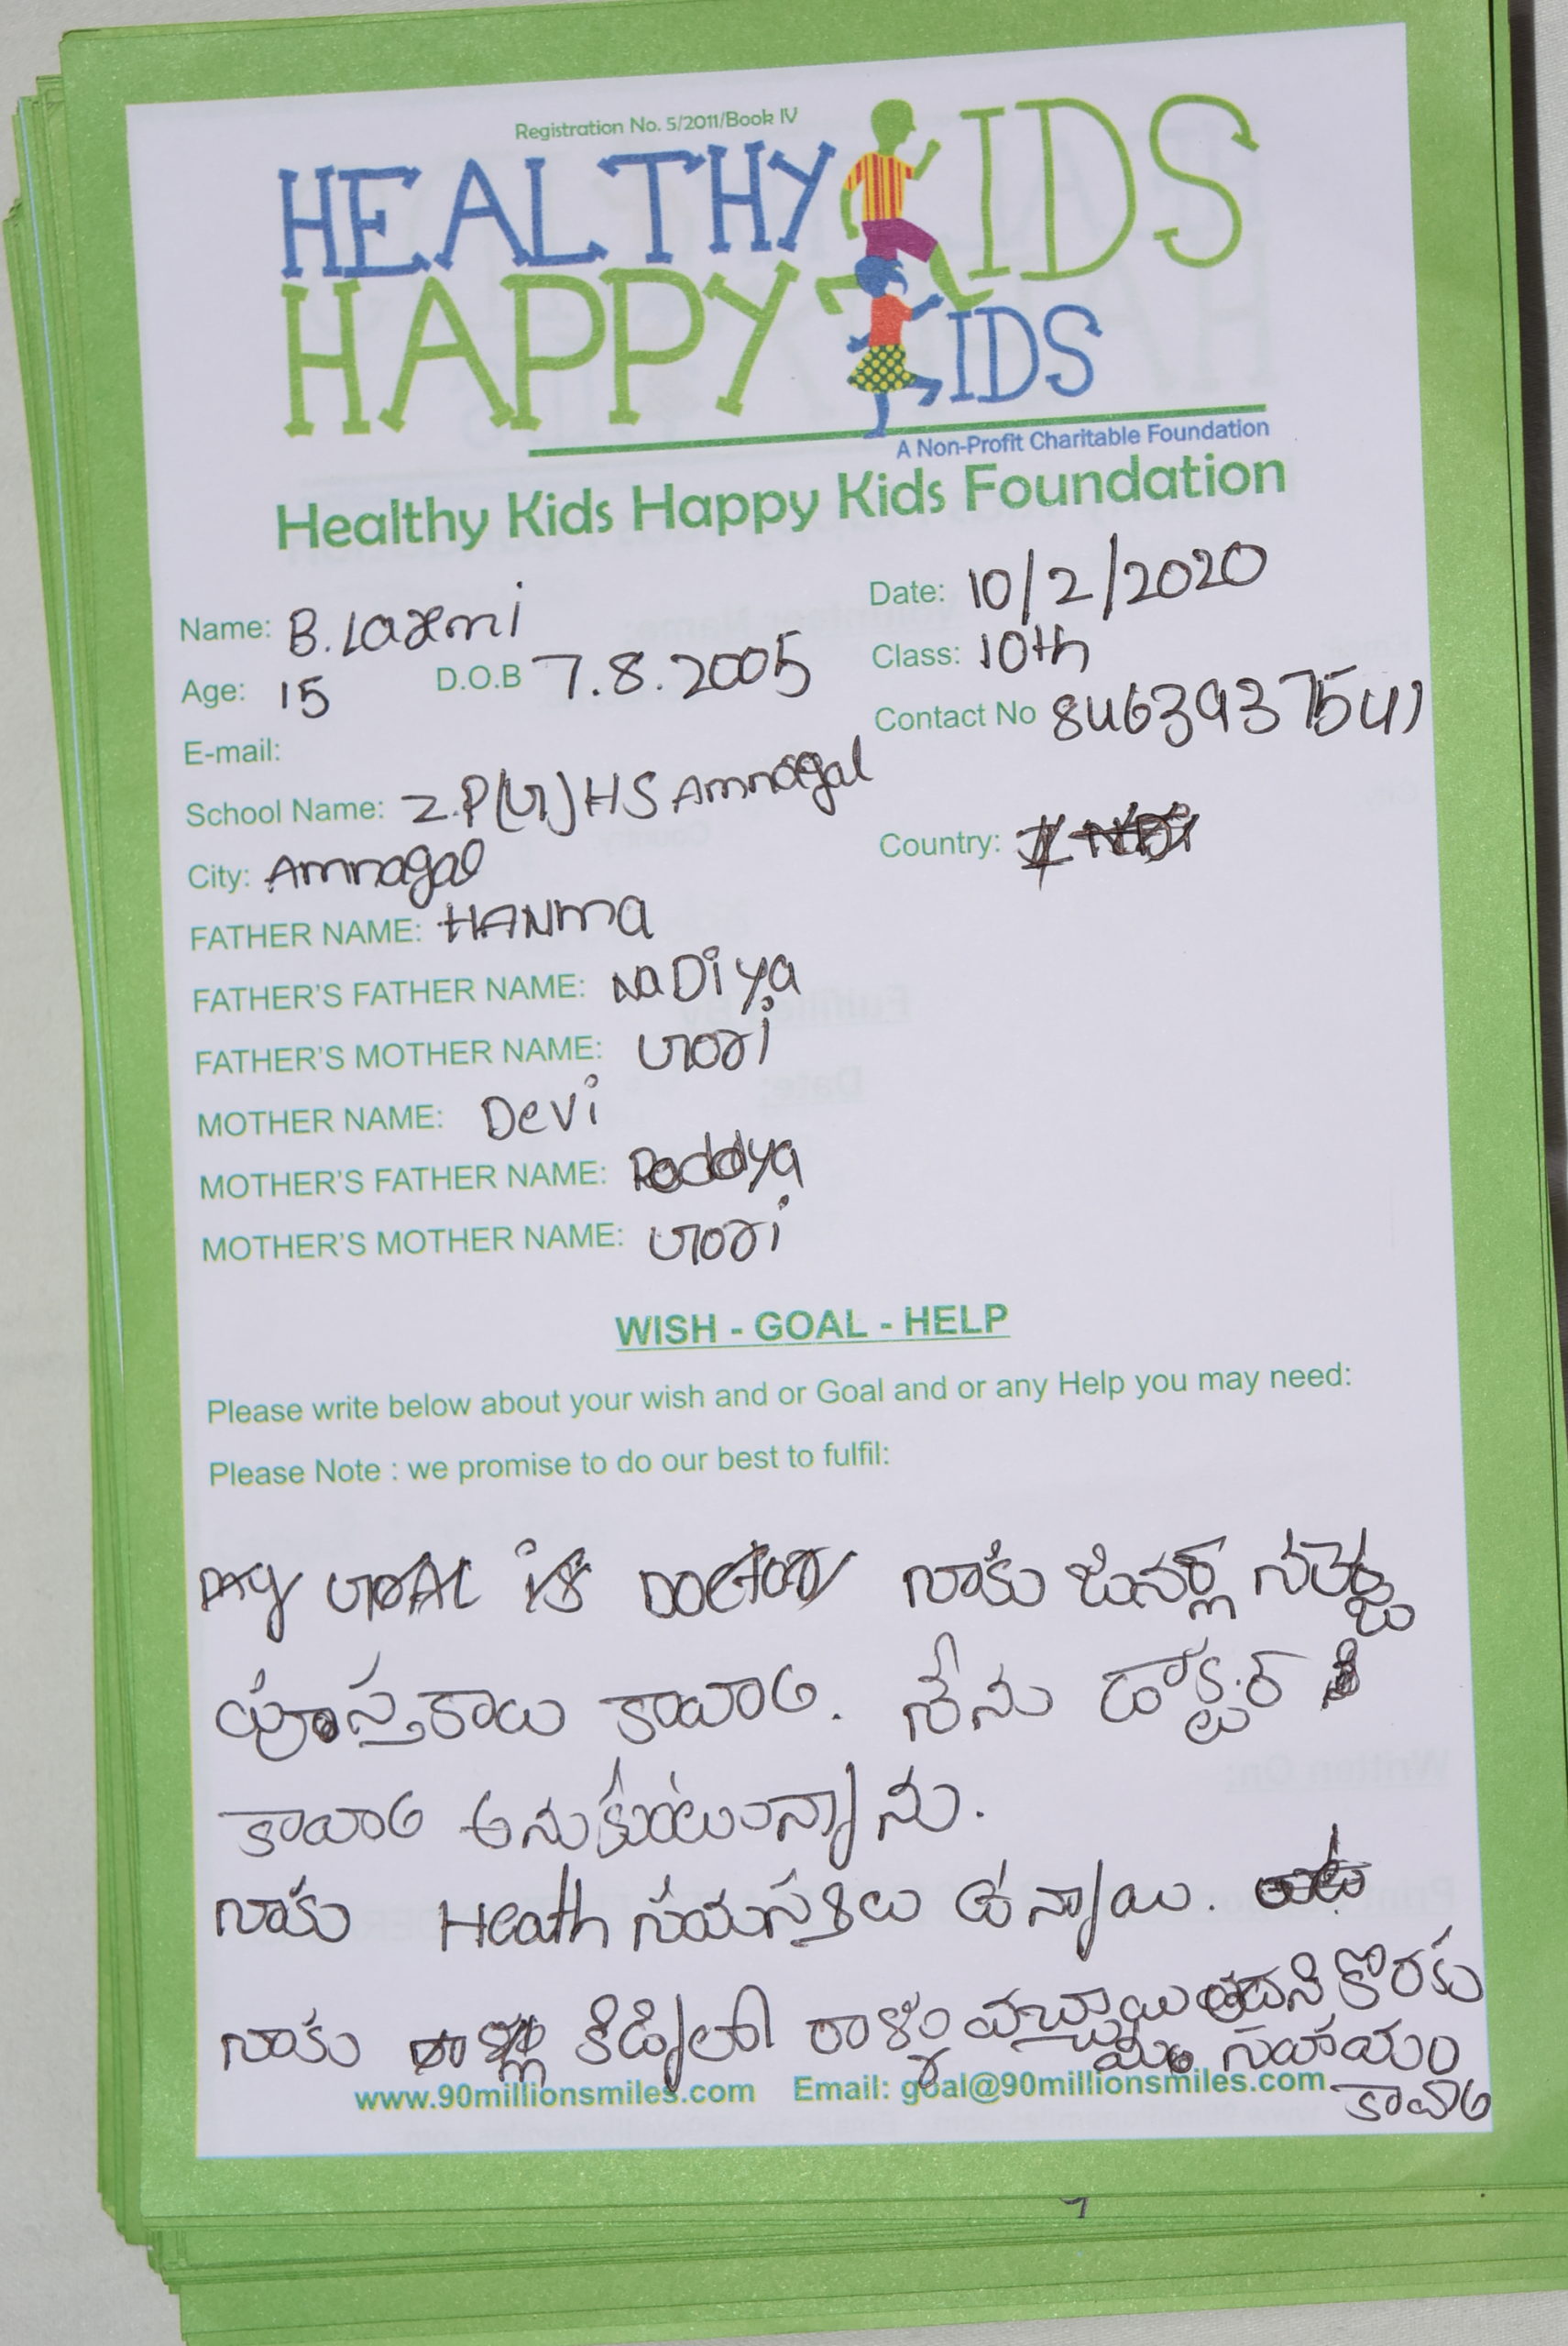 Registration No. 5/2011/Book IV
HEALTHY KIDS
HAPPY KIDS
A Non-Profit Charitable Foundation
Healthy Kids Happy Kids Foundation
Name: B. Laxmi Date: 10/2/2020
Age: 15 D.O.B 7.8.2005 Class: 10th
E-mail: Contact No 8463937541
School Name: Z.P(G)HS Amnagal
City: Amnagal Country:
FATHER NAME: HANMa
FATHER'S FATHER NAME: NaDiya
FATHER'S MOTHER NAME: Gori
MOTHER NAME: Devi
MOTHER'S FATHER NAME:
MOTHER'S MOTHER NAME: Gori
WISH - GOAL - HELP
Please write below about your wish and or Goal and or any Help you may need:
Please Note : we promise to do our best to fulfil:
my GOAL is DOCTOR నాకు జనరల్
పుస్తకాలు కావాలి. నేను డాక్టర్
కావాలి అనుకుంటున్నాను.
నాకు Heath సమస్తకిలు ఉన్నాయి.
నాకు కిడ్నిలో రాళ్లు వచ్చాయి కొరకు
సహాయం
www.90millionsmiles.com Email: goal@90millionsmiles.com
కావాలి